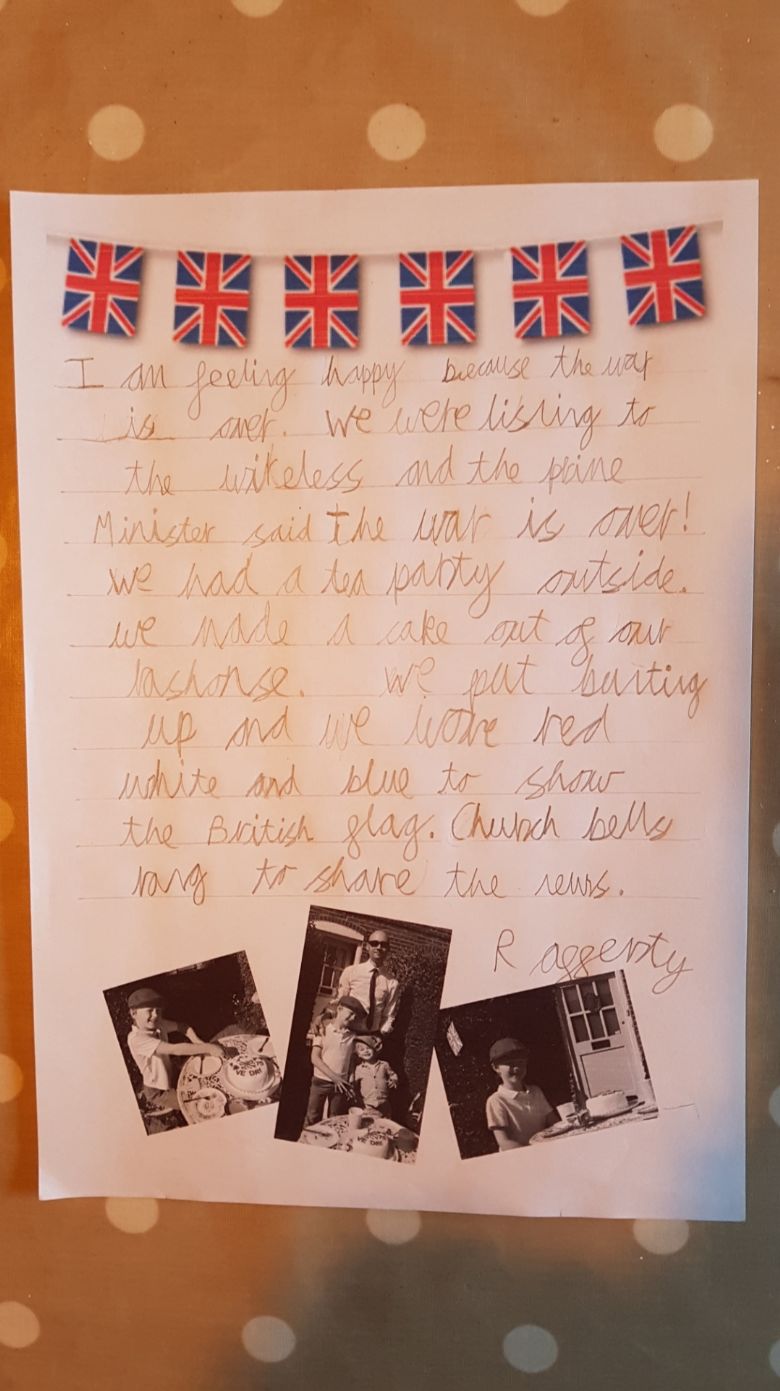 I am feeling happy because the war
is over. We were lisning to
the wireless and the prime
Minister said The war is over!
we had a tea party outside.
we made a cake out of our
rashonse. We put bunting
up and we wore red
white and blue to show
the British flag. Church bells
rang to share the news.
R
VE DAY
VE DAY